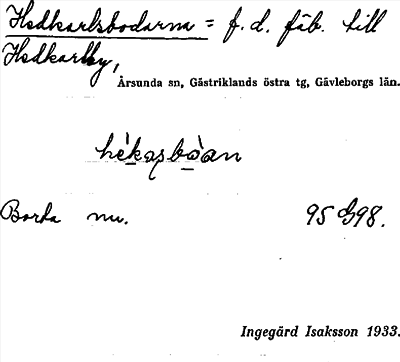 Hedkarlsbodarna = f.d. fäb. till
Hedkarlby,
Årsunda sn, Gästriklands östra tg, Gävleborgs län.
Borta nu.
Ingegärd Isaksson 1933.